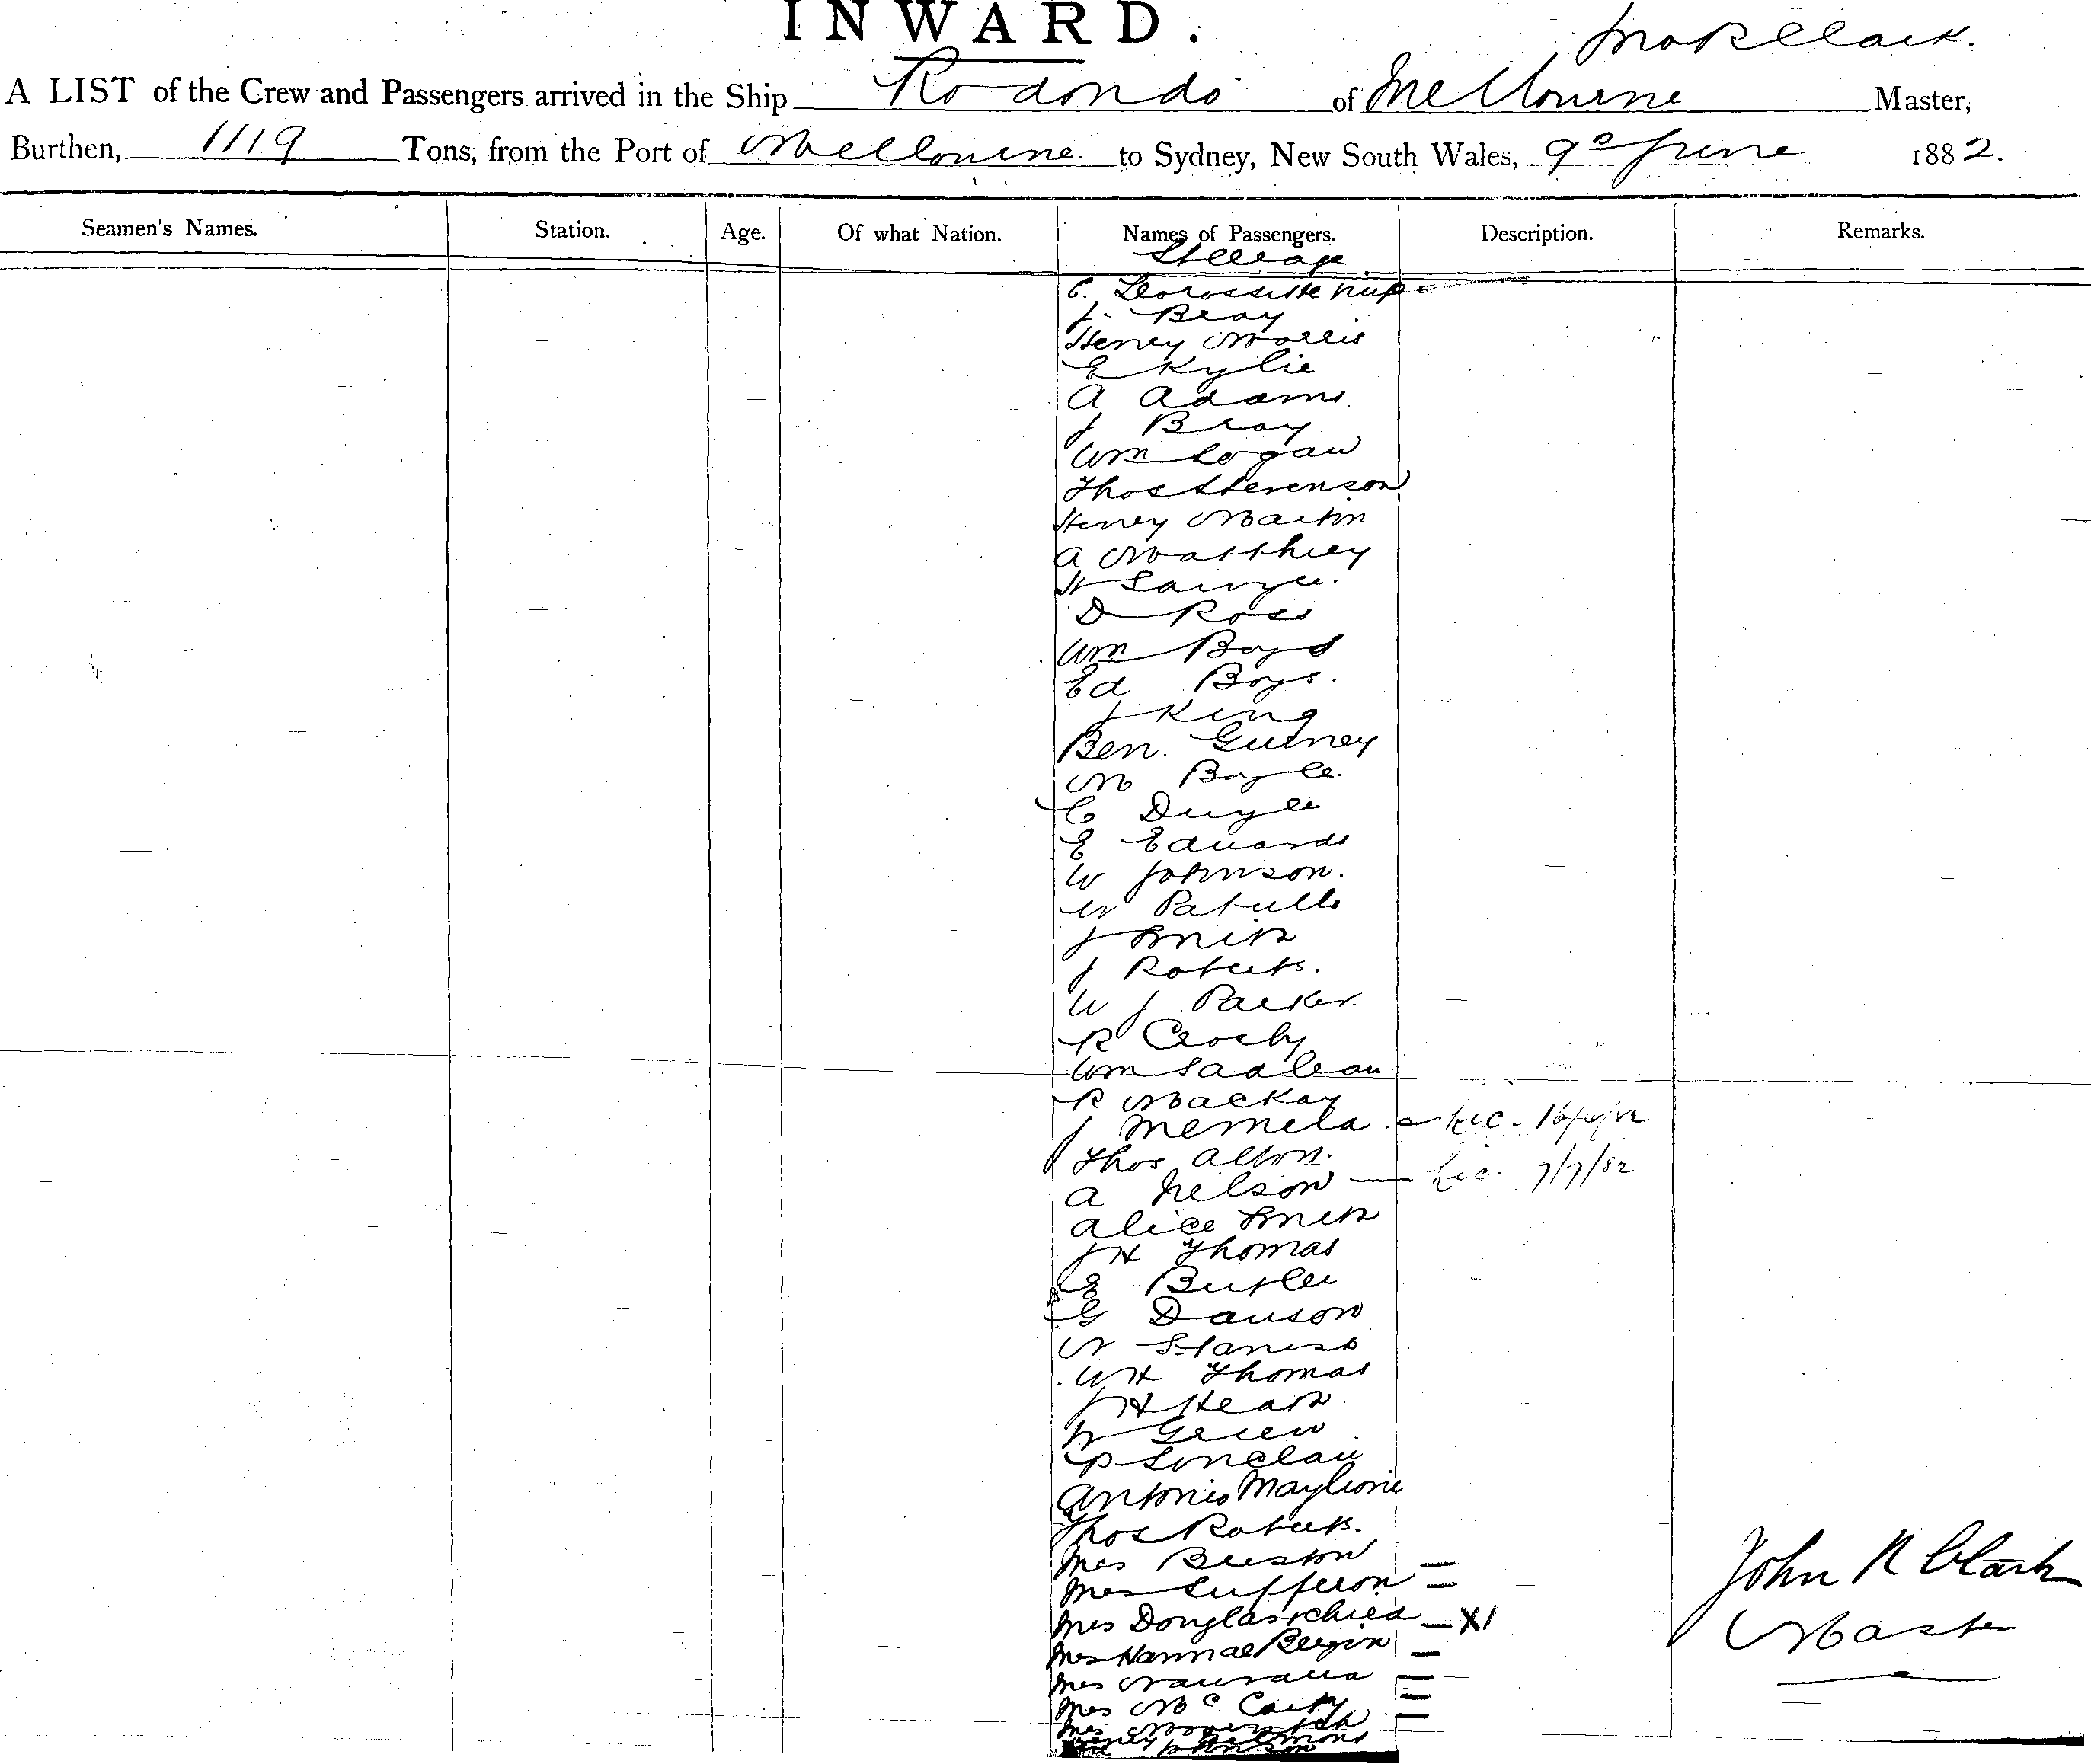 INWARD.
A LIST of the Crew and Passengers arrived in the Ship Rodondo of Melbourne Master,
Burthen, 1119 Tons, from the Port of Melbourne to Sydney, New South Wales, 9 June 1882.
Seamen's Names. Station. Age. Of what Nation. Names of Passengers. Description. Remarks.
Steerage
J. Bray
Henry Morris
E Kylie
A Adams
J Bray
Wm Logan
Thos Stevenson
Henry Martin
A
H Sawyer.
D Ross
Wm Boyd
Ed Boys.
J King
Ben. Gurney
M Boyle.
C
E Edwards
W Johnson.
W Patullo
J Smith
J Roberts.
W J Parker.
R Crosby
Wm
R Mackay
J Memela Lic.
Thos Alton.
A Nelson — Lic. 7/7/82
Alice Smith
J H Thomas
E Butler
G Dawson
W
W H Thomas
J H Heath
Green
P Sinclair
Antonio
Thos Roberts.
Mrs
Mrs
Mrs Douglas & child — X1
Mrs
Mrs
Mrs McCarthy
Mrs
John R Clark
Master